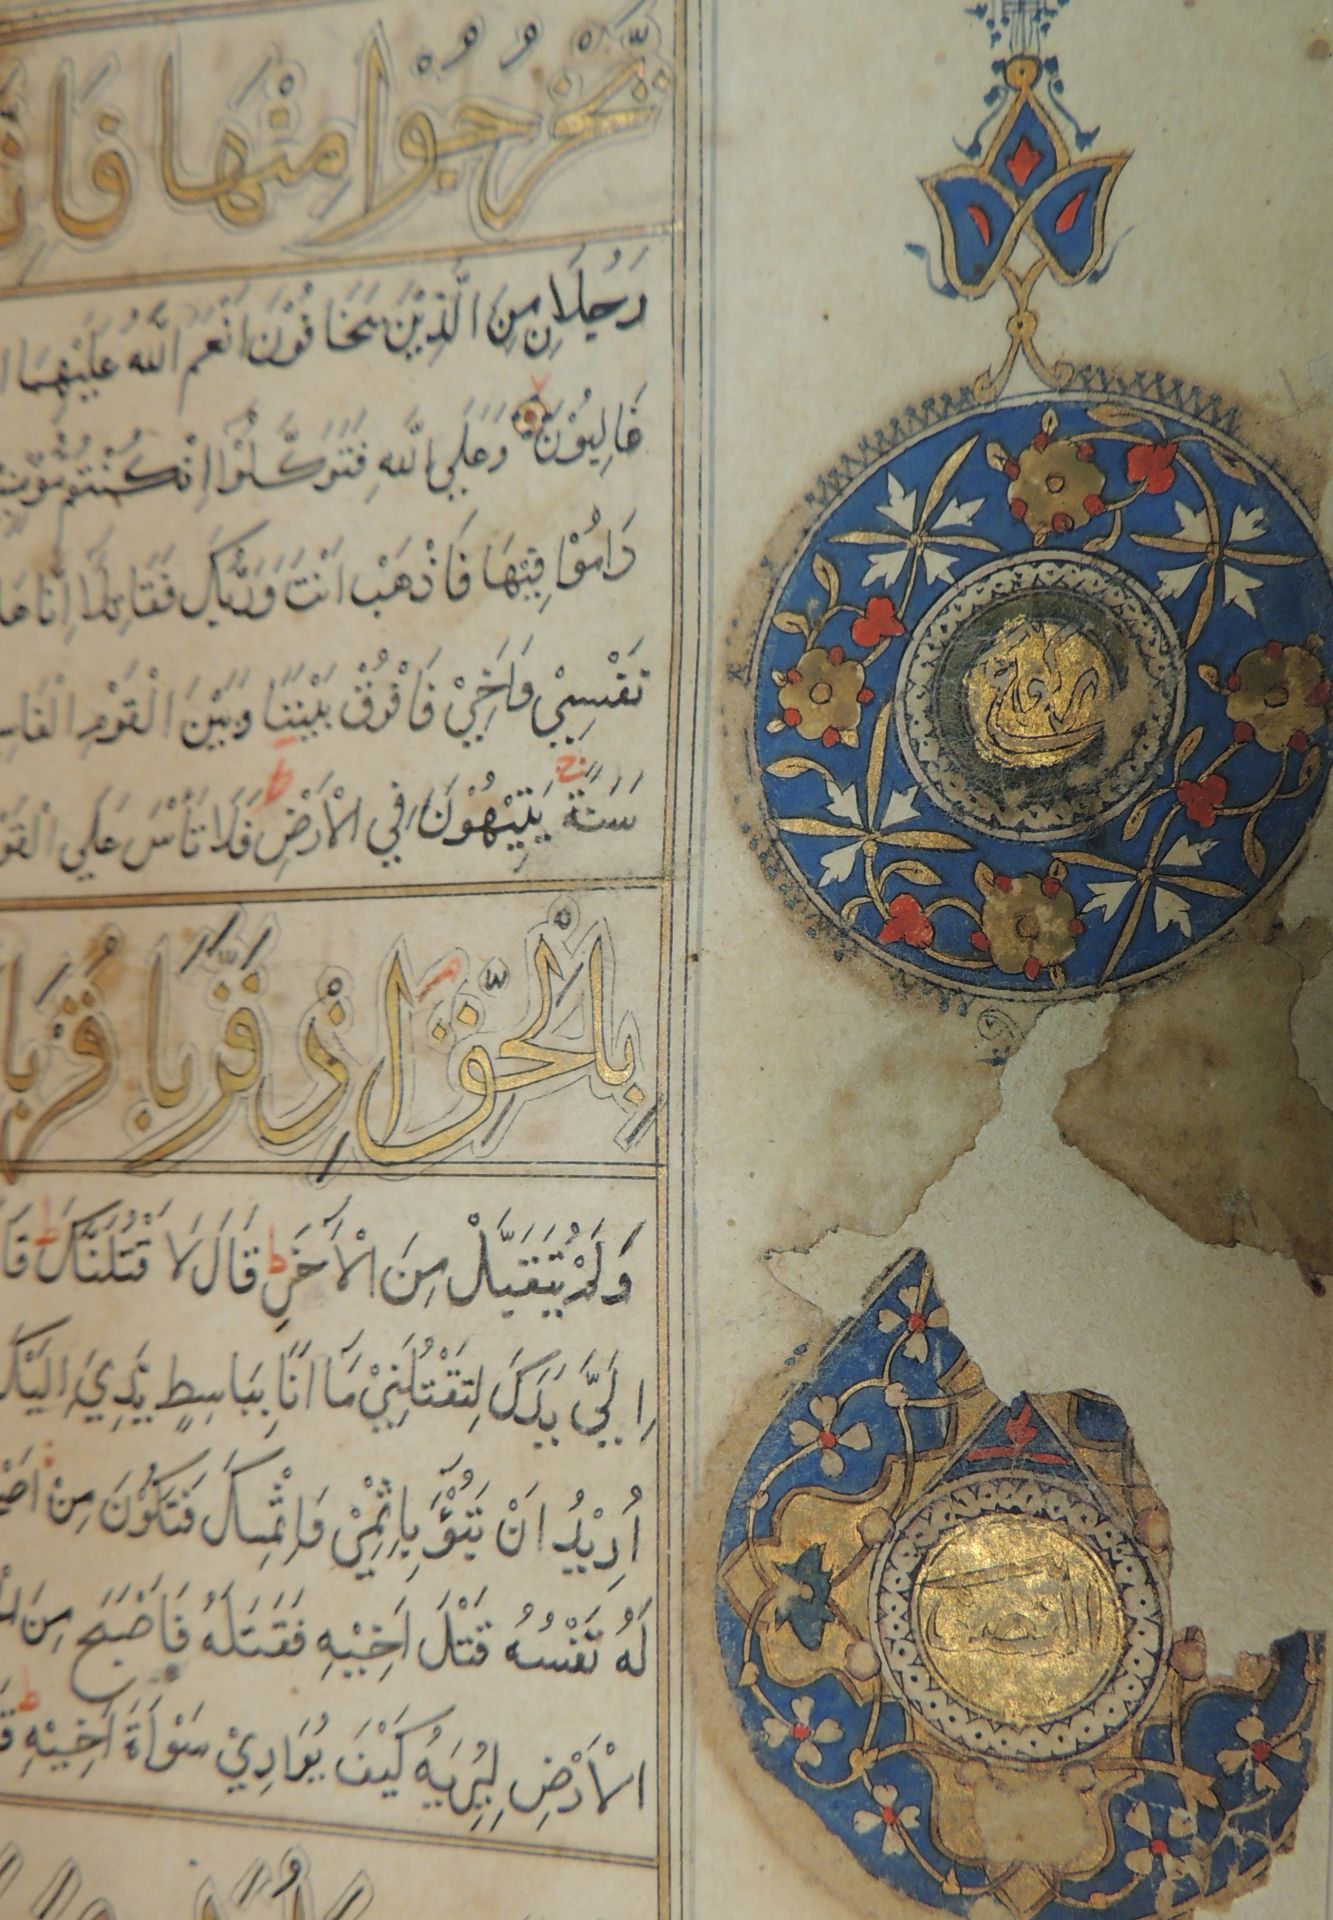 يَخْرُجُوْا مِنْهَا فَاِنْ
رَجُلَانِ مِنَ الَّذِيْنَ يَخَافُوْنَ اَنْعَمَ اللّٰهُ عَلَيْهِمَا
غَالِبُوْنَ وَعَلَي اللّٰهِ فَتَوَكَّلُوْا اِنْ كُنْتُمْ
دَامُوْا فِيْهَا فَاذْهَبْ اَنْتَ وَرَبُّكَ فَقَاتِلَا اِنَّا
نَفْسِيْ وَاَخِيْ فَافْرُقْ بَيْنَنَا وَبَيْنَ الْقَوْمِ
سَنَةً يَتِيْهُوْنَ فِي الْاَرْضِ ط فَلَا تَأْسَ عَلَي
بِالْحَقِّ اِذْ قَرَّبَا قُرْبَا
وَلَمْ يُتَقَبَّلْ مِنَ الْاٰخَرِ ط قَالَ لَاَقْتُلَنَّكَ ط
اِلَيَّ يَدَكَ لِتَقْتُلَنِيْ مَا اَنَا بِبَاسِطٍ يَدِيَ اِلَيْكَ
اُرِيْدُ اَنْ تَبُوْٓءَ بِاِثْمِيْ وَاِثْمِكَ فَتَكُوْنَ مِنْ
لَهُ نَفْسُهُ قَتْلَ اَخِيْهِ فَقَتَلَهُ فَاَصْبَحَ مِنَ
الْاَرْضِ لِيُرِيَهُ كَيْفَ يُوَارِيْ سَوْاَةَ اَخِيْهِ ط